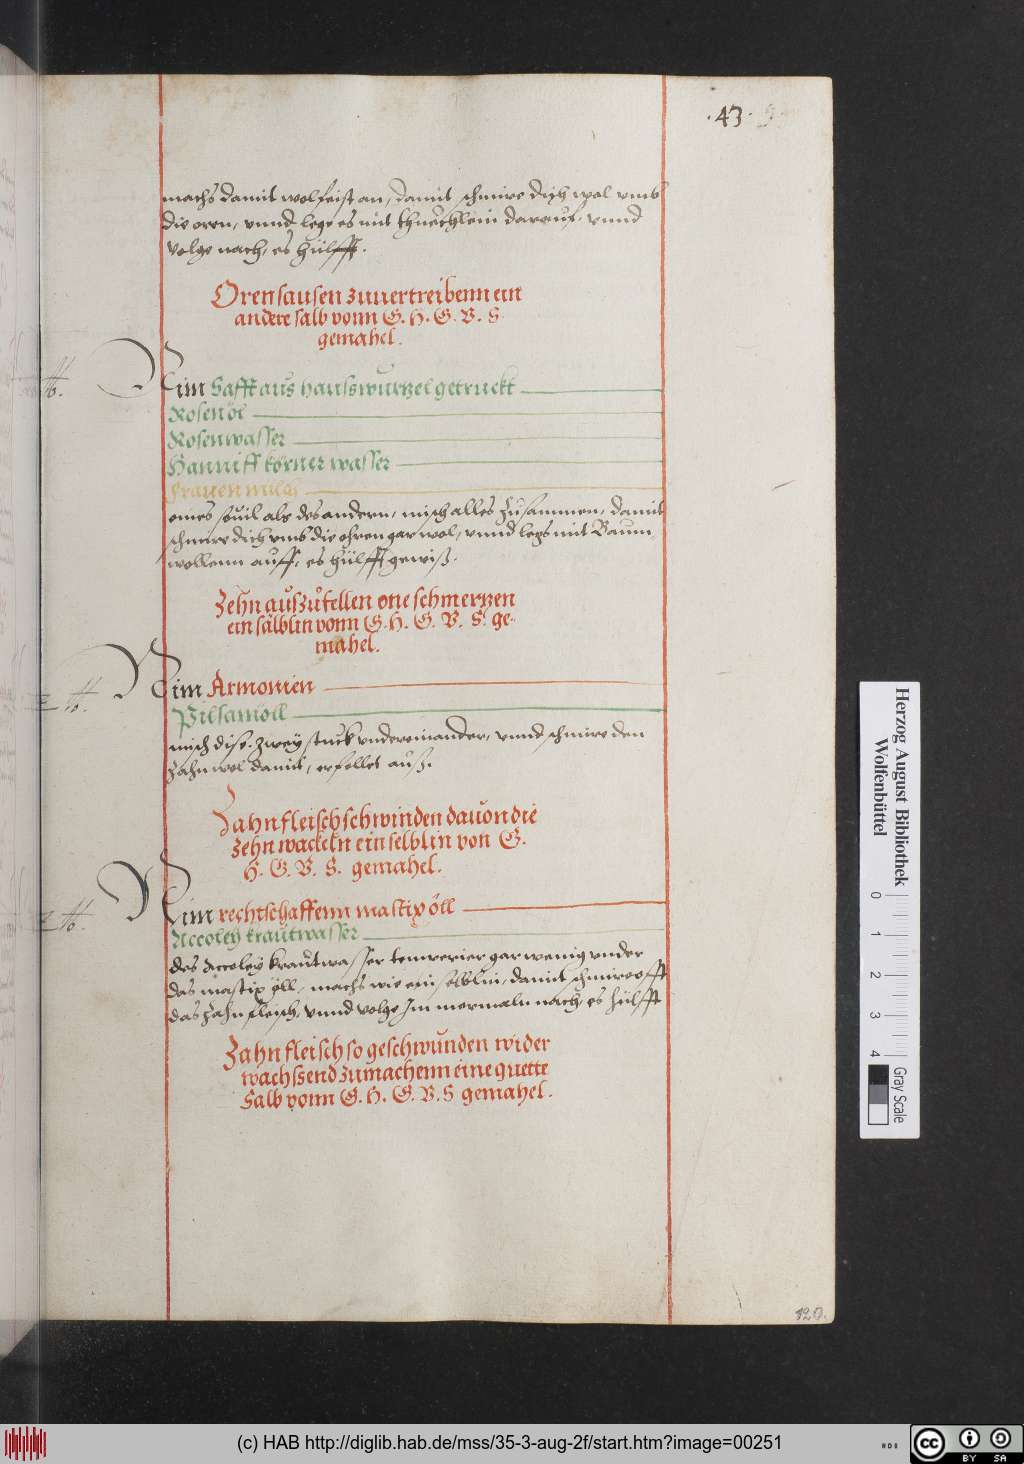 ·43·
machs damit wolfeist an, damit schmire dich wol vmb
die oren, vnnd lege es mit thuechlein darauf, vnnd
volge nach, es hülfft.
Oren sausen zuuertreibenn ein
andere salb vonn G. H. G. V. S.
gemahel.
Nim Safft aus hausswurzel getruckt
Rosenöl
Rosenwasser
Hanniff körner wasser
frauen milch
eines souil als des andern, misch alles zusammen, damit
schmire dich vmb die ohren gar wol, vnnd legs mit Baum
wollenn auff, es hülfft gewiß.
Zehn auszufellen one schmerzen
ein sälblin vonn G. H. G. V. S. ge-
mahel.
Nim Armonien
Pilsamöll
misch dise zwey stuck vndereinander, vnnd schmire den
Zahn wol damit, er fellet auß.
Zahnfleisch schwinden dauon die
zehn wackeln ein selblin von G.
H. G. V. S. gemahel.
Nim rechtschaffenn mastix öll
Accoley krautwasser
des Accoley krautwasser temperier gar wenig vnder
das mastix öll, machs wie ein selblin, damit schmier offt
das Zahnfleisch, vnnd volge Im mermaln nach, es hülfft
Zahnfleisch so geschwunden wider
wachssend zumachenn eine guette
Salb vonn G. H. G. V. S gemahel.
120.
Herzog August Bibliothek
Wolfenbüttel
0 1 2 3 4
Gray Scale
(c) HAB http://diglib.hab.de/mss/35-3-aug-2f/start.htm?image=00251
HAB
cc BY SA